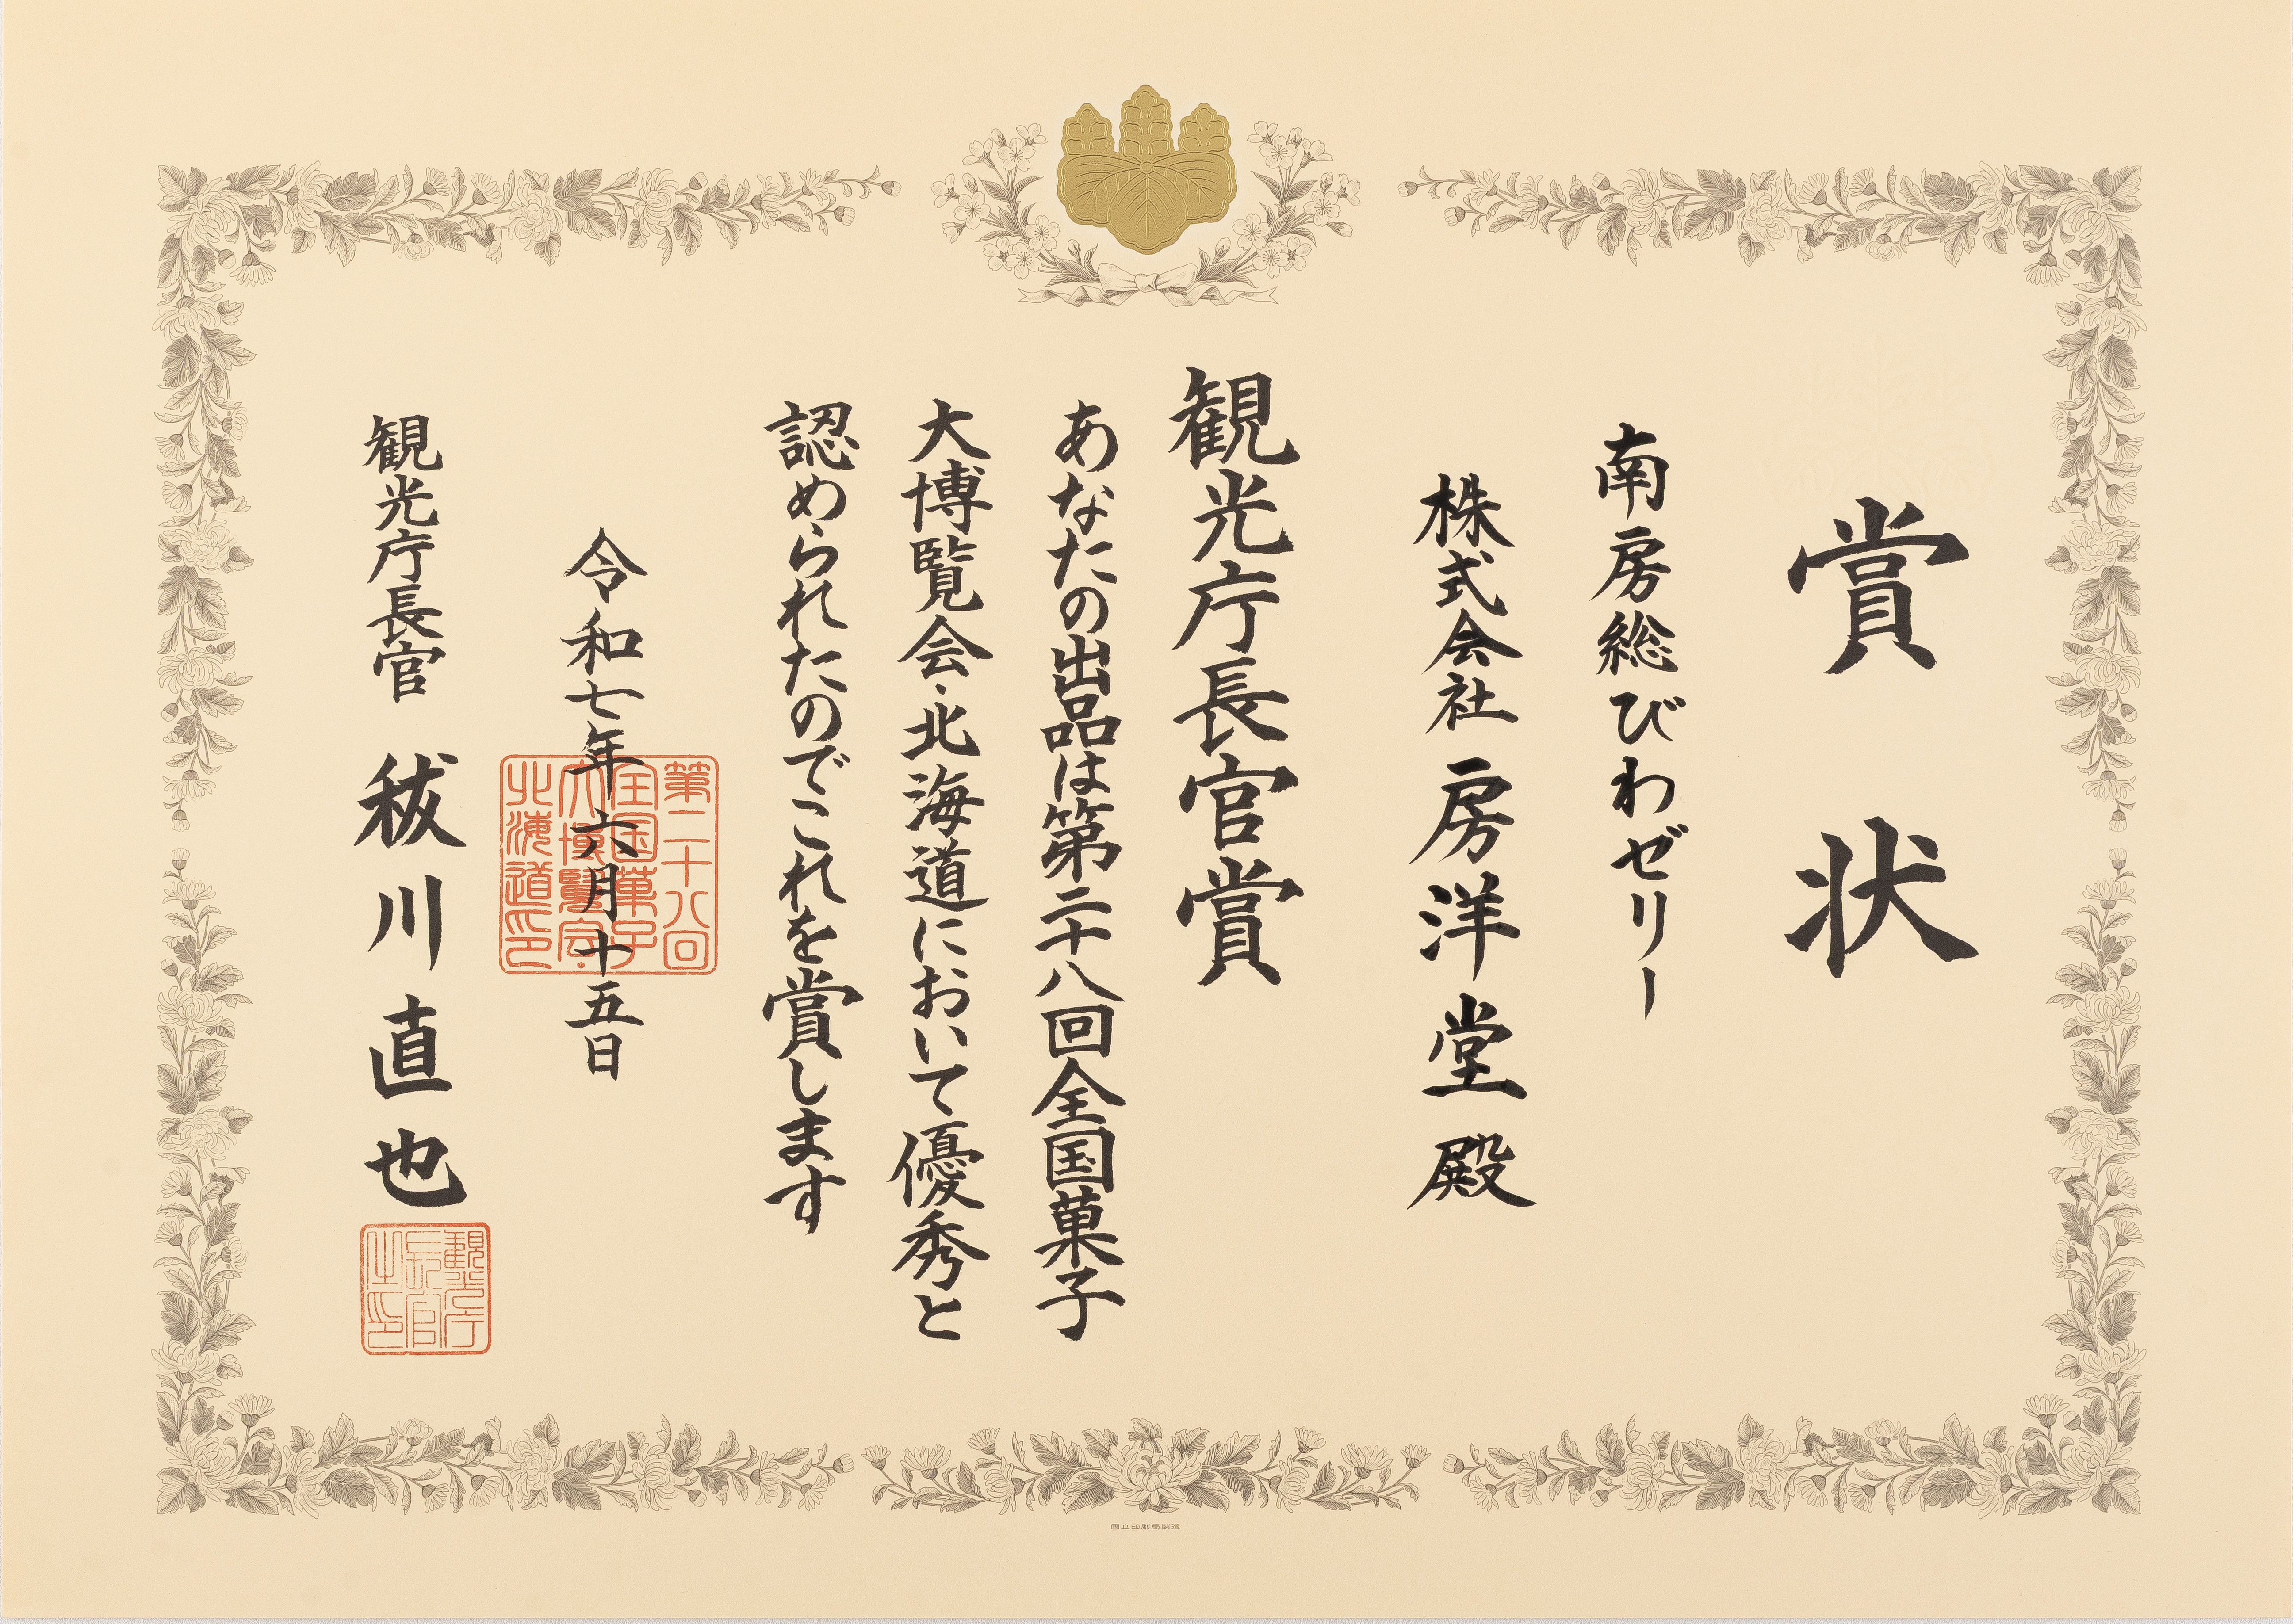 賞状
南房総びわゼリー
株式会社 房洋堂 殿
観光庁長官賞
あなたの出品は第二十八回全国菓子
大博覧会・北海道において優秀と
認められたのでこれを賞します
令和七年六月十五日
第二十八回
全国菓子
大博覧会
北海道印
観光庁長官 秡川直也
観光庁
長官
之印
国立印刷局製造